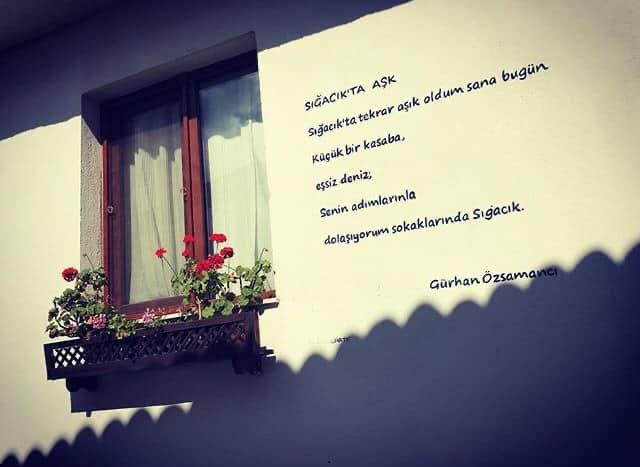 SIĞACIK'TA AŞK
Sığacık'ta tekrar aşık oldum sana bugün
Küçük bir kasaba,
eşsiz deniz;
Senin adımlarınla
dolaşıyorum sokaklarında Sıgacık.
Gürhan Özsamancı